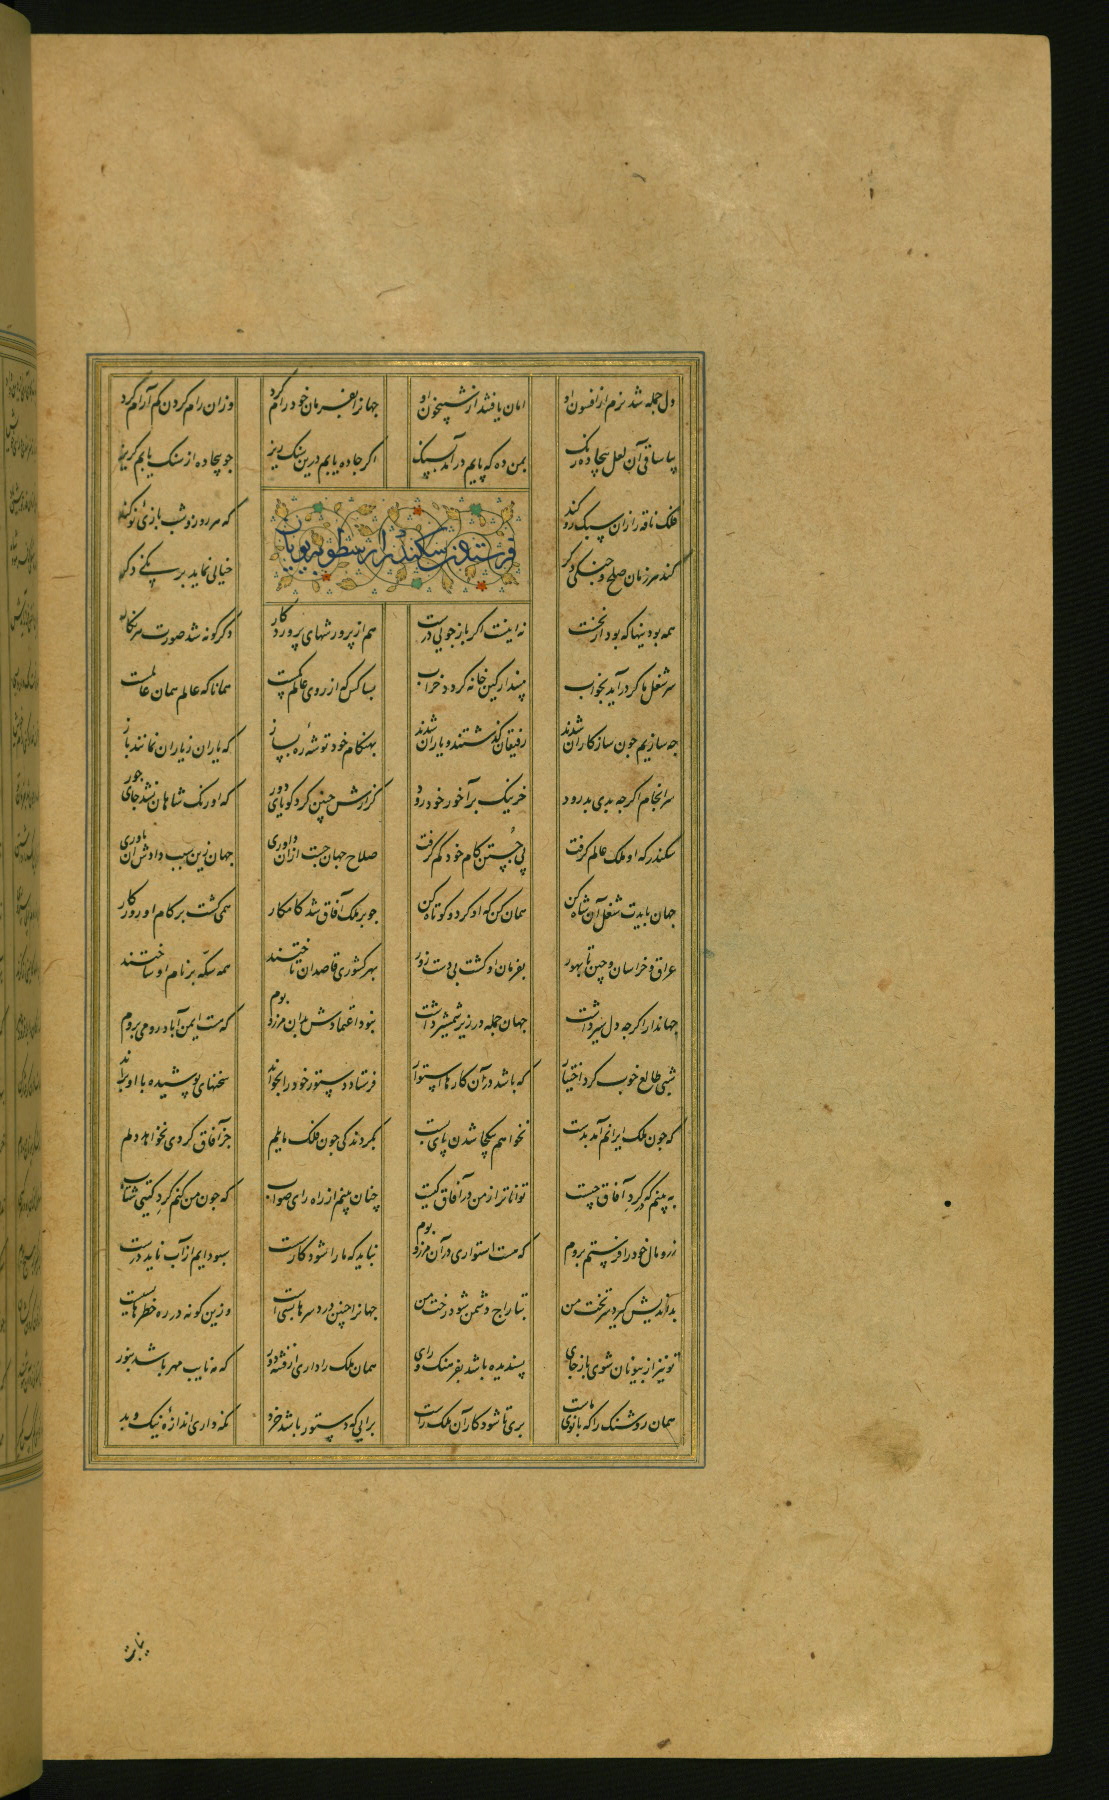 دل جمله شد نرم از افسون او امان یافتند از شبیخون او جهانرا بفرمان خود رام کرد وزان رام کردن کم آرام کرد
بیا ساقی آن لعل بیجاده رنک بمن ده که پایم درآمد بسنک اکر جاده یابم درین سنک ریز جو بیجاده از سنک یابم کریز
فرستادن سکندر ارسطو به یونان
فلک ناقه را زان سبک رو کند که هر روز و شب بازیی نو کند
کند هر زمان صلح و جنکی دکر خیالی نماید برنکی دکر
همه بودنیها که بود از نخست نه اینست اکر بازجویی درست هم از پرورشهای پروردکار دکرکونه شد صورت هر نکار
سر شغل ما کر درآید بخواب مپندار کین خانه کردد خراب بسا کس که از روی عالم کمست همانا که عالم همان عالمست
جه سازیم جون سازکاران شدند رفیقان کذشتند و یاران شدند بهنکام خود توشهٔ ره بساز که یاران ز یاران نمانند باز
سرانجام اکرجه بدی بدرود خرنیک بر آخور خود رود کزارش جنین کرد کویای دور که اورنک شاهان نشد جای جور
سکندر که او ملک عالم کرفت پی جُستن کام خود کم کرفت صلاح جهان جست ازان داوری جهان زین سبب دادش آن یاوری
جهان بایدت شغل آن شاه کن همان کن که او کرد و کوتاه کن جو بر ملک آفاق شد کامکار همی کشت بر کام او روزکار
عراق و خراسان و جین تا بهور بفرمان او کشت بی دست زور بهر کشوری قاصدان تاختند همه سکّه بر نام او ساختند
جهاندار اکرجه دل شیر داشت جهان جمله در زیر شمشیر داشت نبود اعتمادش بران مرز و بوم که هست ایمن آباد رومی بروم
شبی طالع خوب کرد اختیار که باشد درآن کارها استوار فرستاد و دستور خود را بخواند سخنهای پوشیده با او براند
که جون ملک ایرانم آمد بدست نخواهم بیکجا شدن پای بست بکردندکی جون فلک مایلم جز آفاق کردی نخواهد دلم
ببینم که در کردِ آفاق جیست تواناتر از من در آفاق کیست جنان بینم از راه رای صواب که جون من کنم کرد کیتی شتاب
زر و مال خود را فرستم بروم که هست استواری درآن مرز و بوم نباید که ما را شود کار سست سبو دایم از آب ناید درست
بداندیش کیرد سر تخت من بتاراج دشمن شود رخت من جهانرا جنین درد سرها بسی است وزین کونه در ره خطرها بسیست
تو نیز از بیونان شوی باز جای پسندیده باشد بفرهنک و رای همان ملک را داری از فتنه دور که مه نایب مهر باشد بنور
همان روشنک را که بانوی ماست بری تا شود کار آن ملک راست برایی که دستور باشد خرد نکه داری اندازهٔ نیک و بد
نیابت